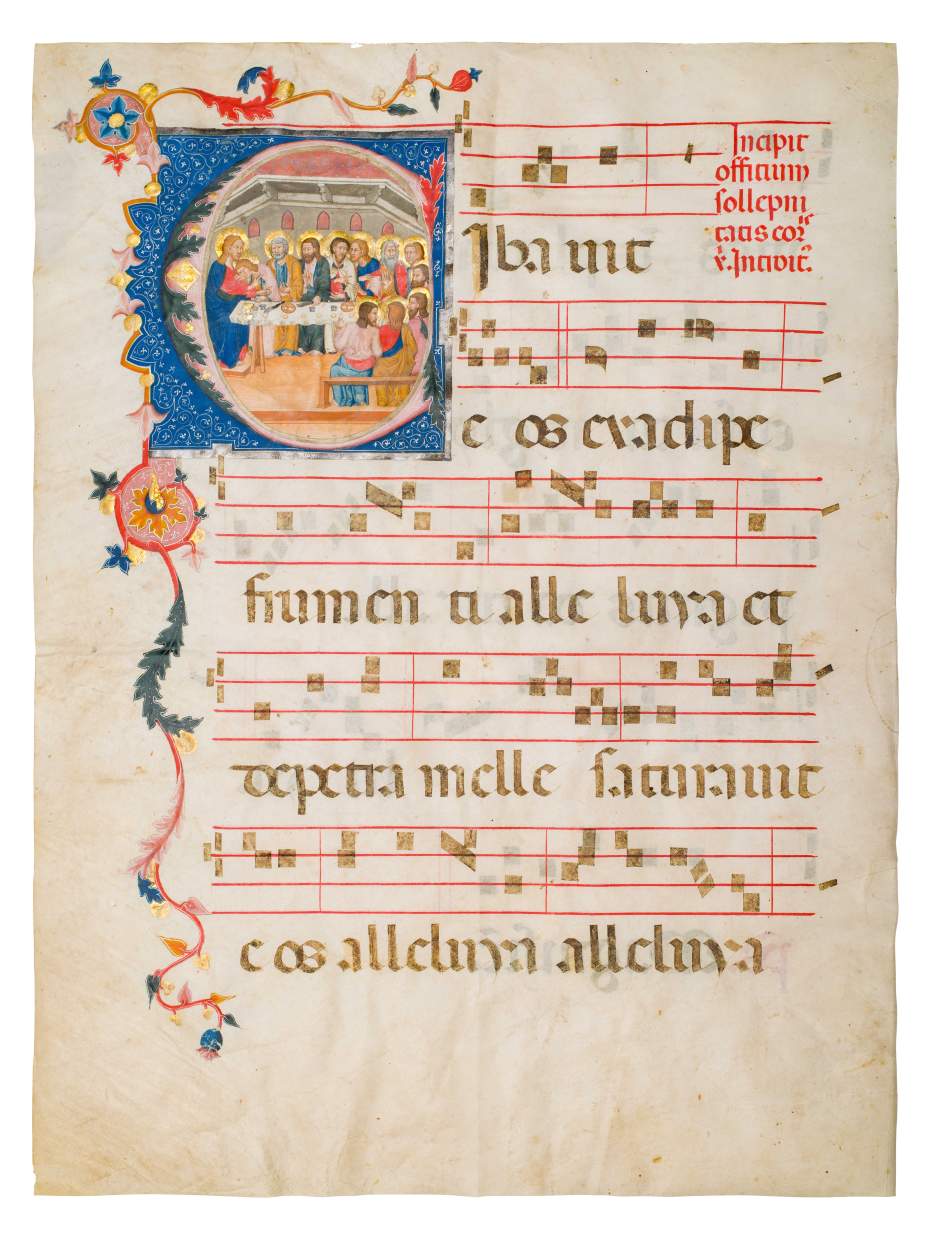 Incipit
officium
sollepni
tatis cor
x̄. Introit.
CIbauit
e os ex adipe
frumen ti alle luya et
de petra melle saturauit
e os alleluya alleluya